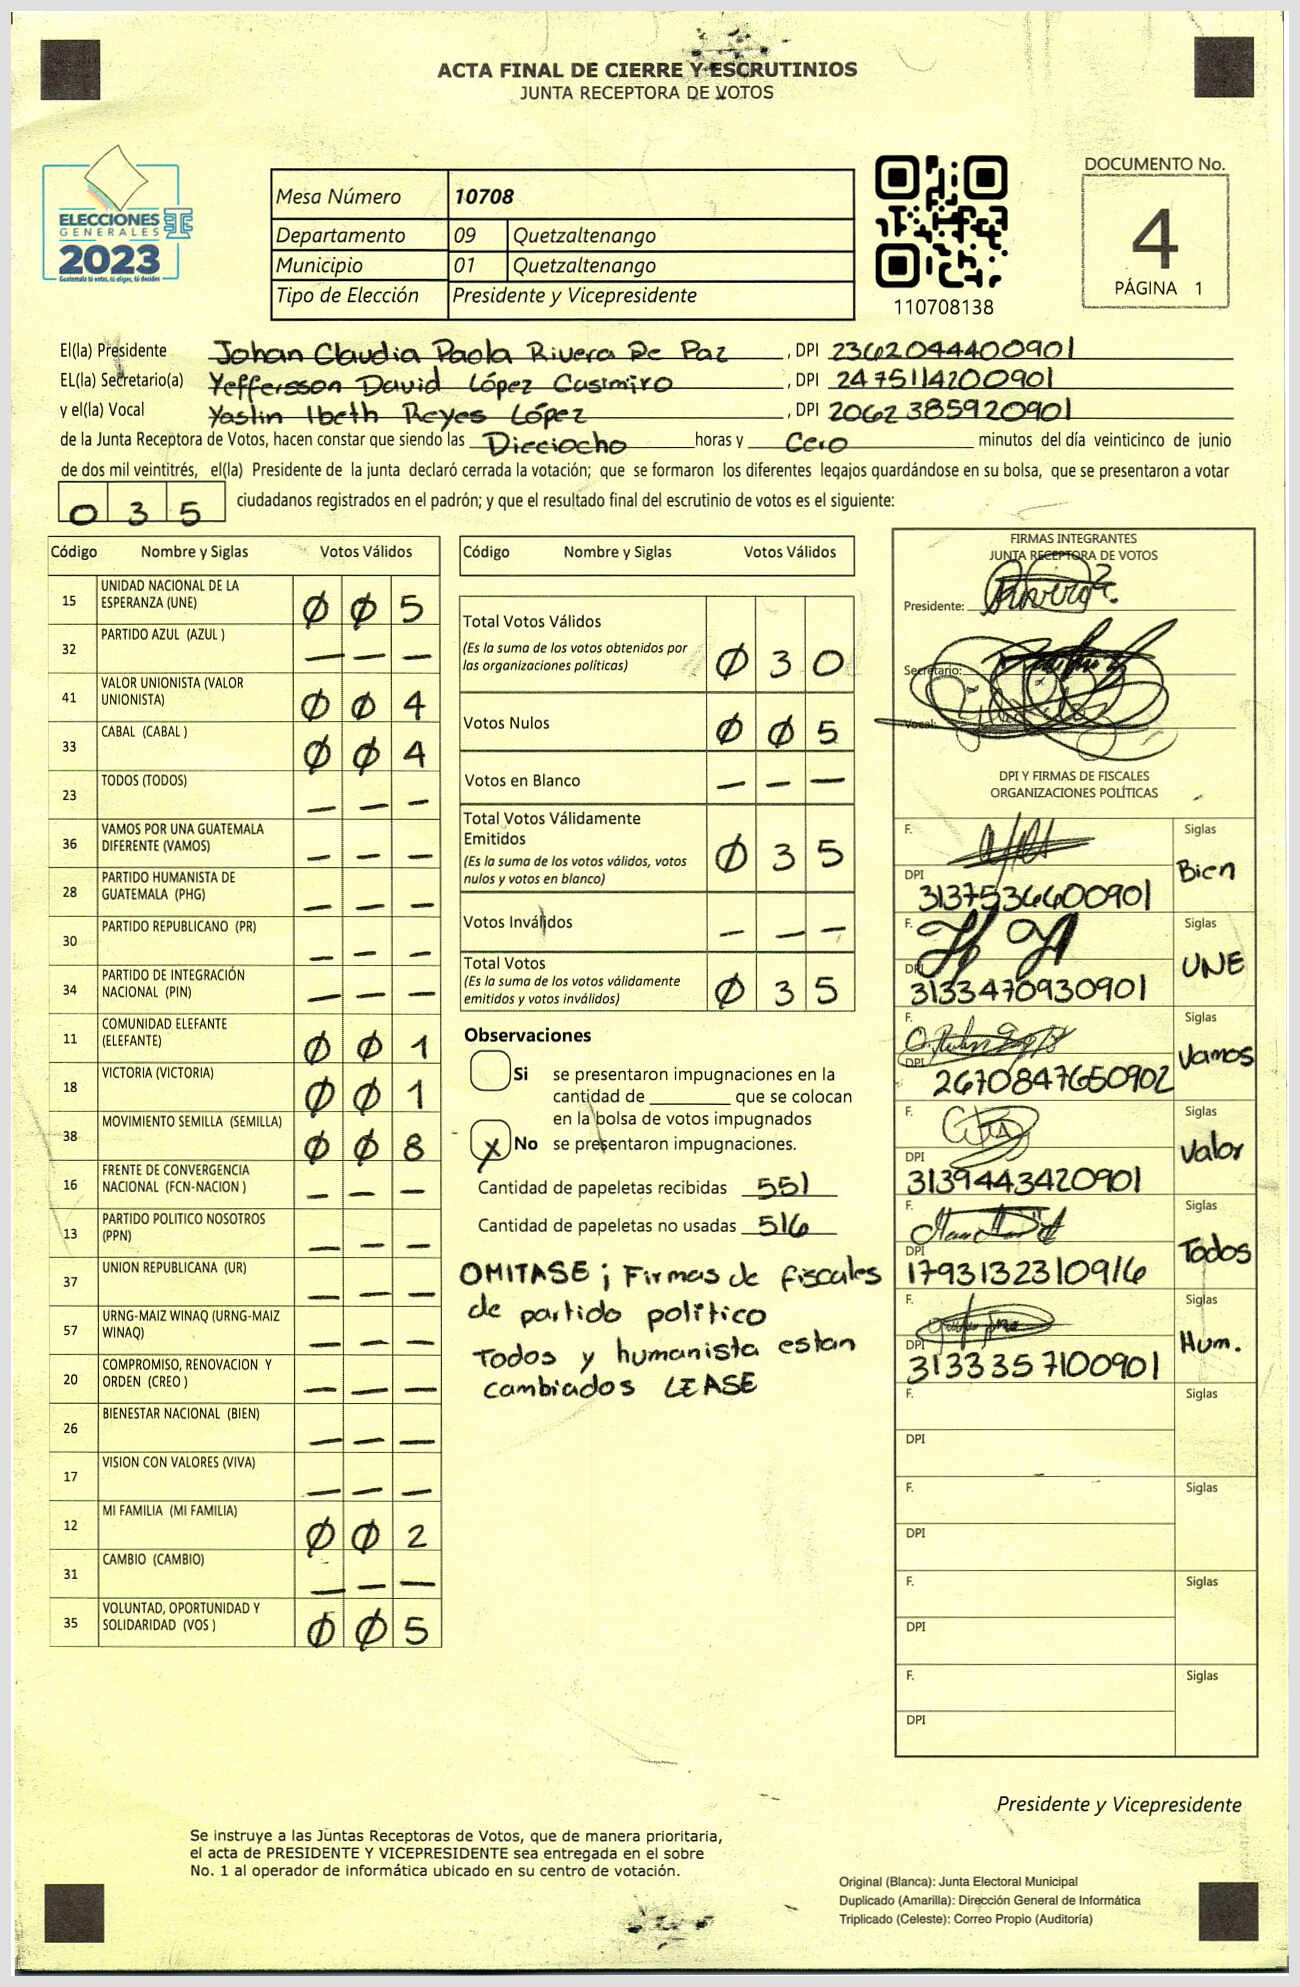 ACTA FINAL DE CIERRE Y ESCRUTINIOS
JUNTA RECEPTORA DE VOTOS
ELECCIONES
GENERALES
2023
Guatemala tú votas, tú eliges, tú decides
Mesa Número 10708
Departamento 09 Quetzaltenango
Municipio 01 Quetzaltenango
Tipo de Elección Presidente y Vicepresidente
110708138
DOCUMENTO No.
4
PÁGINA 1
El(la) Presidente Johan Claudia Paola Rivera De Paz , DPI 2362044400901
EL(la) Secretario(a) Yeffersson David López Casimiro , DPI 2475114200901
y el(la) Vocal Yaslin Ibeth Reyes López , DPI 2062385920901
de la Junta Receptora de Votos, hacen constar que siendo las Dieciocho horas y Cero minutos del día veinticinco de junio
de dos mil veintitrés, el(la) Presidente de la junta declaró cerrada la votación; que se formaron los diferentes legajos guardándose en su bolsa, que se presentaron a votar
035 ciudadanos registrados en el padrón; y que el resultado final del escrutinio de votos es el siguiente:
Código Nombre y Siglas Votos Válidos
15 UNIDAD NACIONAL DE LA ESPERANZA (UNE) 0 0 5
32 PARTIDO AZUL (AZUL ) — — —
41 VALOR UNIONISTA (VALOR UNIONISTA) 0 0 4
33 CABAL (CABAL ) 0 0 4
23 TODOS (TODOS) — — —
36 VAMOS POR UNA GUATEMALA DIFERENTE (VAMOS) — — —
28 PARTIDO HUMANISTA DE GUATEMALA (PHG) — — —
30 PARTIDO REPUBLICANO (PR) — — —
34 PARTIDO DE INTEGRACIÓN NACIONAL (PIN) — — —
11 COMUNIDAD ELEFANTE (ELEFANTE) 0 0 1
18 VICTORIA (VICTORIA) 0 0 1
38 MOVIMIENTO SEMILLA (SEMILLA) 0 0 8
16 FRENTE DE CONVERGENCIA NACIONAL (FCN-NACION ) — — —
13 PARTIDO POLITICO NOSOTROS (PPN) — — —
37 UNION REPUBLICANA (UR) — — —
57 URNG-MAIZ WINAQ (URNG-MAIZ WINAQ) — — —
20 COMPROMISO, RENOVACION Y ORDEN (CREO ) — — —
26 BIENESTAR NACIONAL (BIEN) — — —
17 VISION CON VALORES (VIVA) — — —
12 MI FAMILIA (MI FAMILIA) 0 0 2
31 CAMBIO (CAMBIO) — — —
35 VOLUNTAD, OPORTUNIDAD Y SOLIDARIDAD (VOS ) 0 0 5
Código Nombre y Siglas Votos Válidos
Total Votos Válidos 0 3 0
(Es la suma de los votos obtenidos por
las organizaciones políticas)
Votos Nulos 0 0 5
Votos en Blanco — — —
Total Votos Válidamente
Emitidos 0 3 5
(Es la suma de los votos válidos, votos
nulos y votos en blanco)
Votos Inválidos — — —
Total Votos 0 3 5
(Es la suma de los votos válidamente
emitidos y votos inválidos)
Observaciones
Si se presentaron impugnaciones en la
cantidad de ________ que se colocan
en la bolsa de votos impugnados
x No se presentaron impugnaciones.
Cantidad de papeletas recibidas 551
Cantidad de papeletas no usadas 516
OMITASE ; Firmas de fiscales
de partido político
Todos y humanista estan
cambiados LEASE
FIRMAS INTEGRANTES
JUNTA RECEPTORA DE VOTOS
Presidente:
Secretario:
Vocal:
DPI Y FIRMAS DE FISCALES
ORGANIZACIONES POLÍTICAS
F. Siglas Bien
DPI 3137536600901
F. Siglas UNE
DPI 3133470930901
F. Siglas Vamos
DPI 2670847650902
F. Siglas Valor
DPI 3139443420901
F. Siglas Todos
DPI 1793132310916
F. Siglas Hum.
DPI 3133357100901
F. Siglas
DPI
F. Siglas
DPI
F. Siglas
DPI
F. Siglas
DPI
Presidente y Vicepresidente
Se instruye a las Juntas Receptoras de Votos, que de manera prioritaria,
el acta de PRESIDENTE Y VICEPRESIDENTE sea entregada en el sobre
No. 1 al operador de informática ubicado en su centro de votación.
Original (Blanca): Junta Electoral Municipal
Duplicado (Amarilla): Dirección General de Informática
Triplicado (Celeste): Correo Propio (Auditoría)